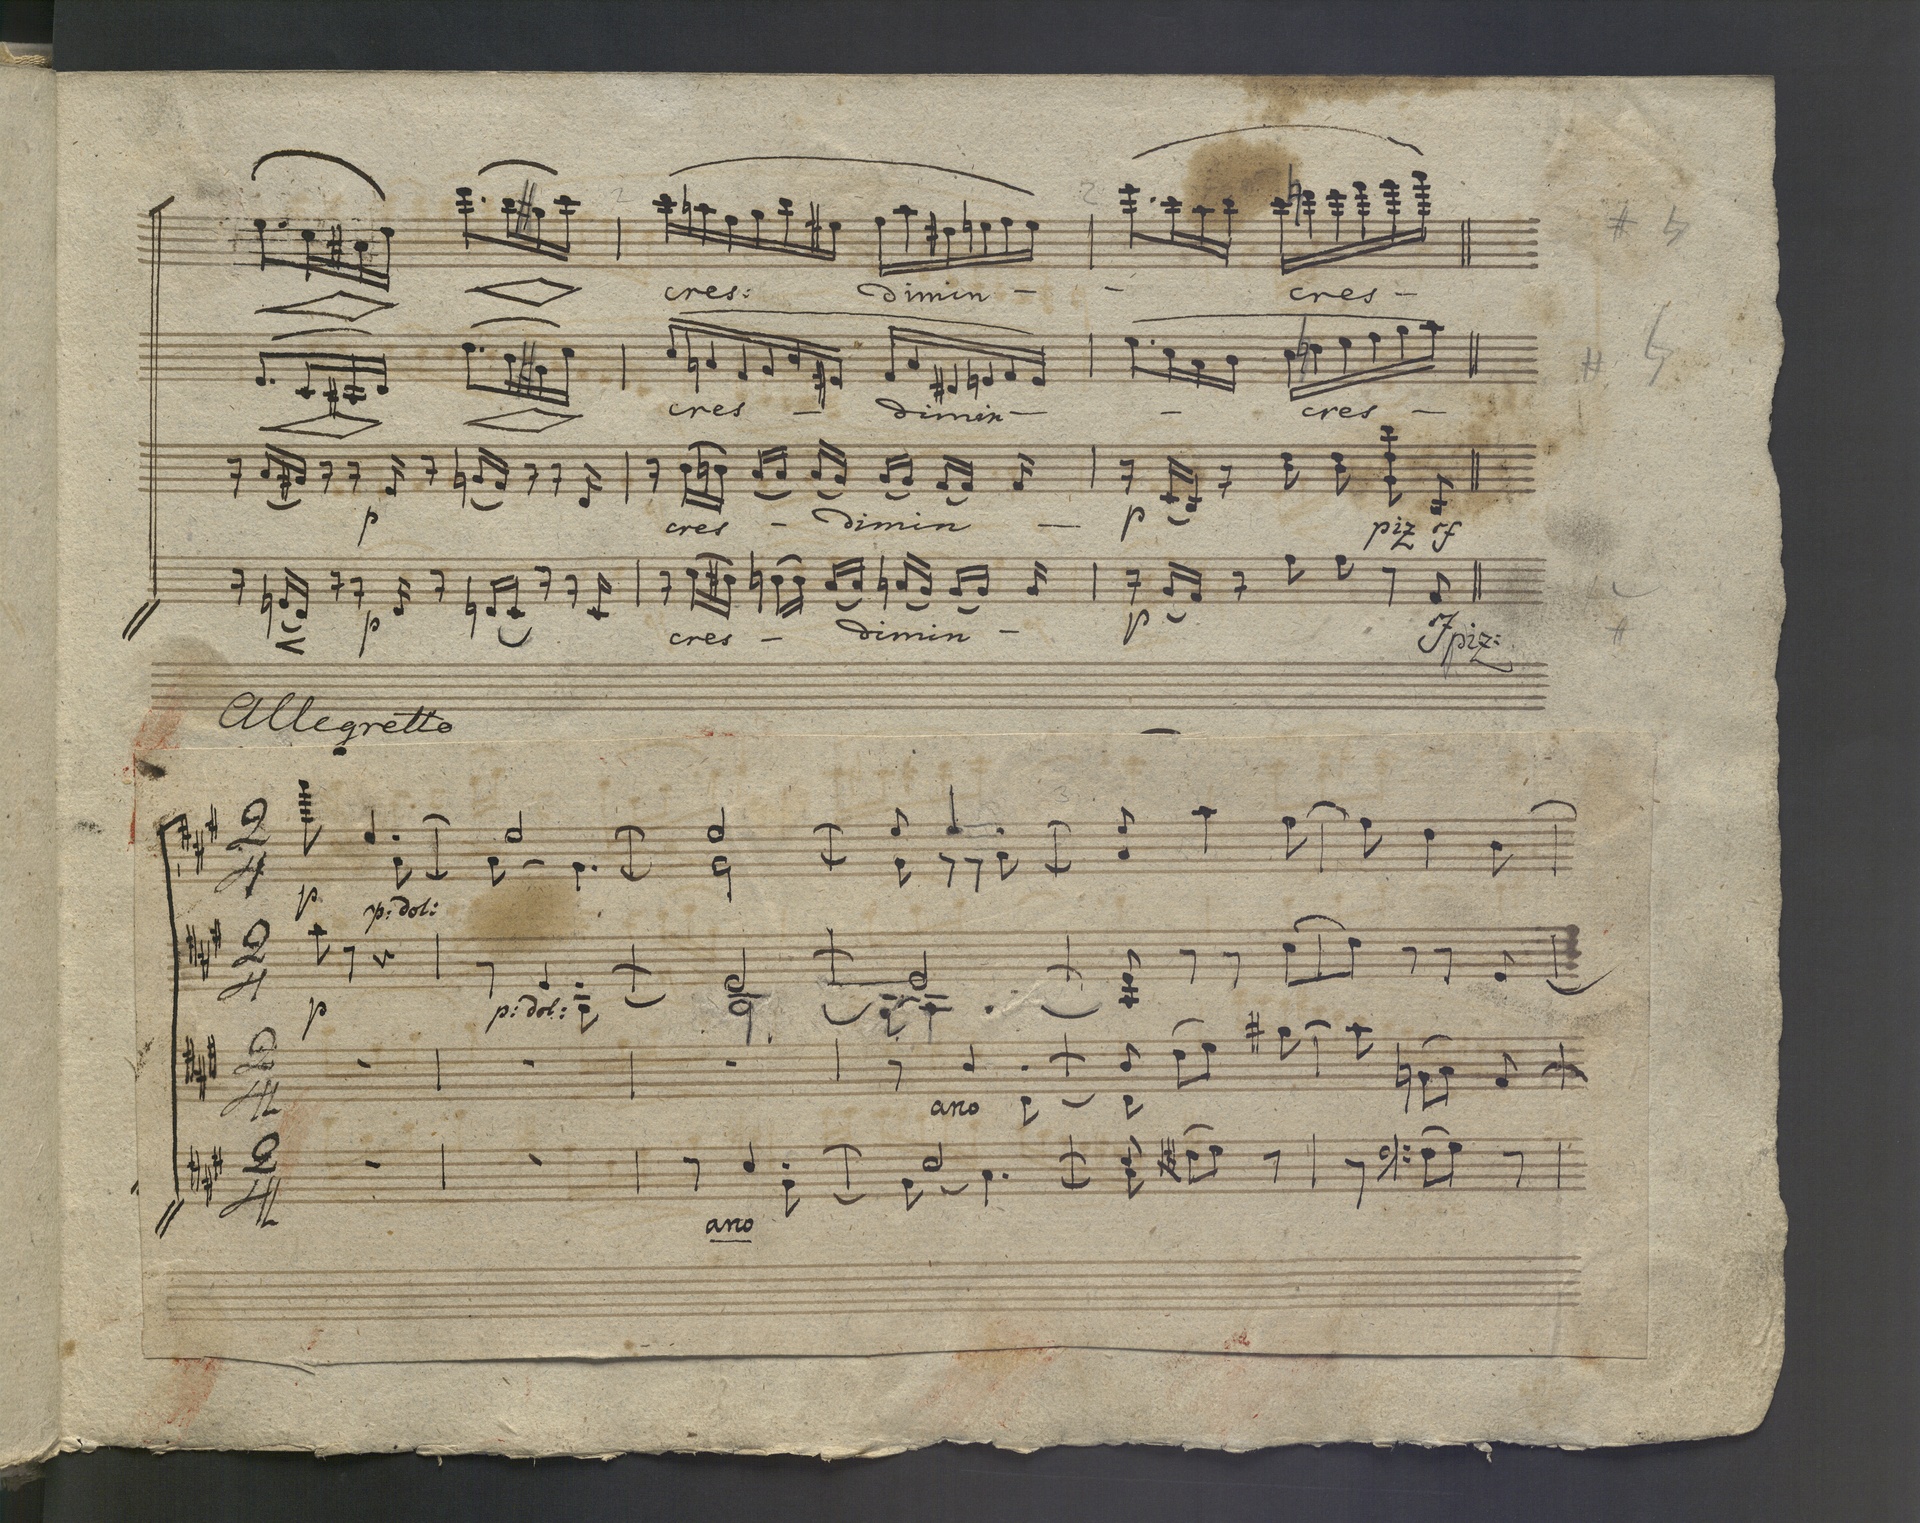 cres: dimin - - cres -
cres - dimin - - cres -
p cres - dimin - p piz sf
p cres - dimin - p sf piz:
Allegretto
2 4
p p: dol:
2 4
p p: dol:
2 4
ano
2 4
ano